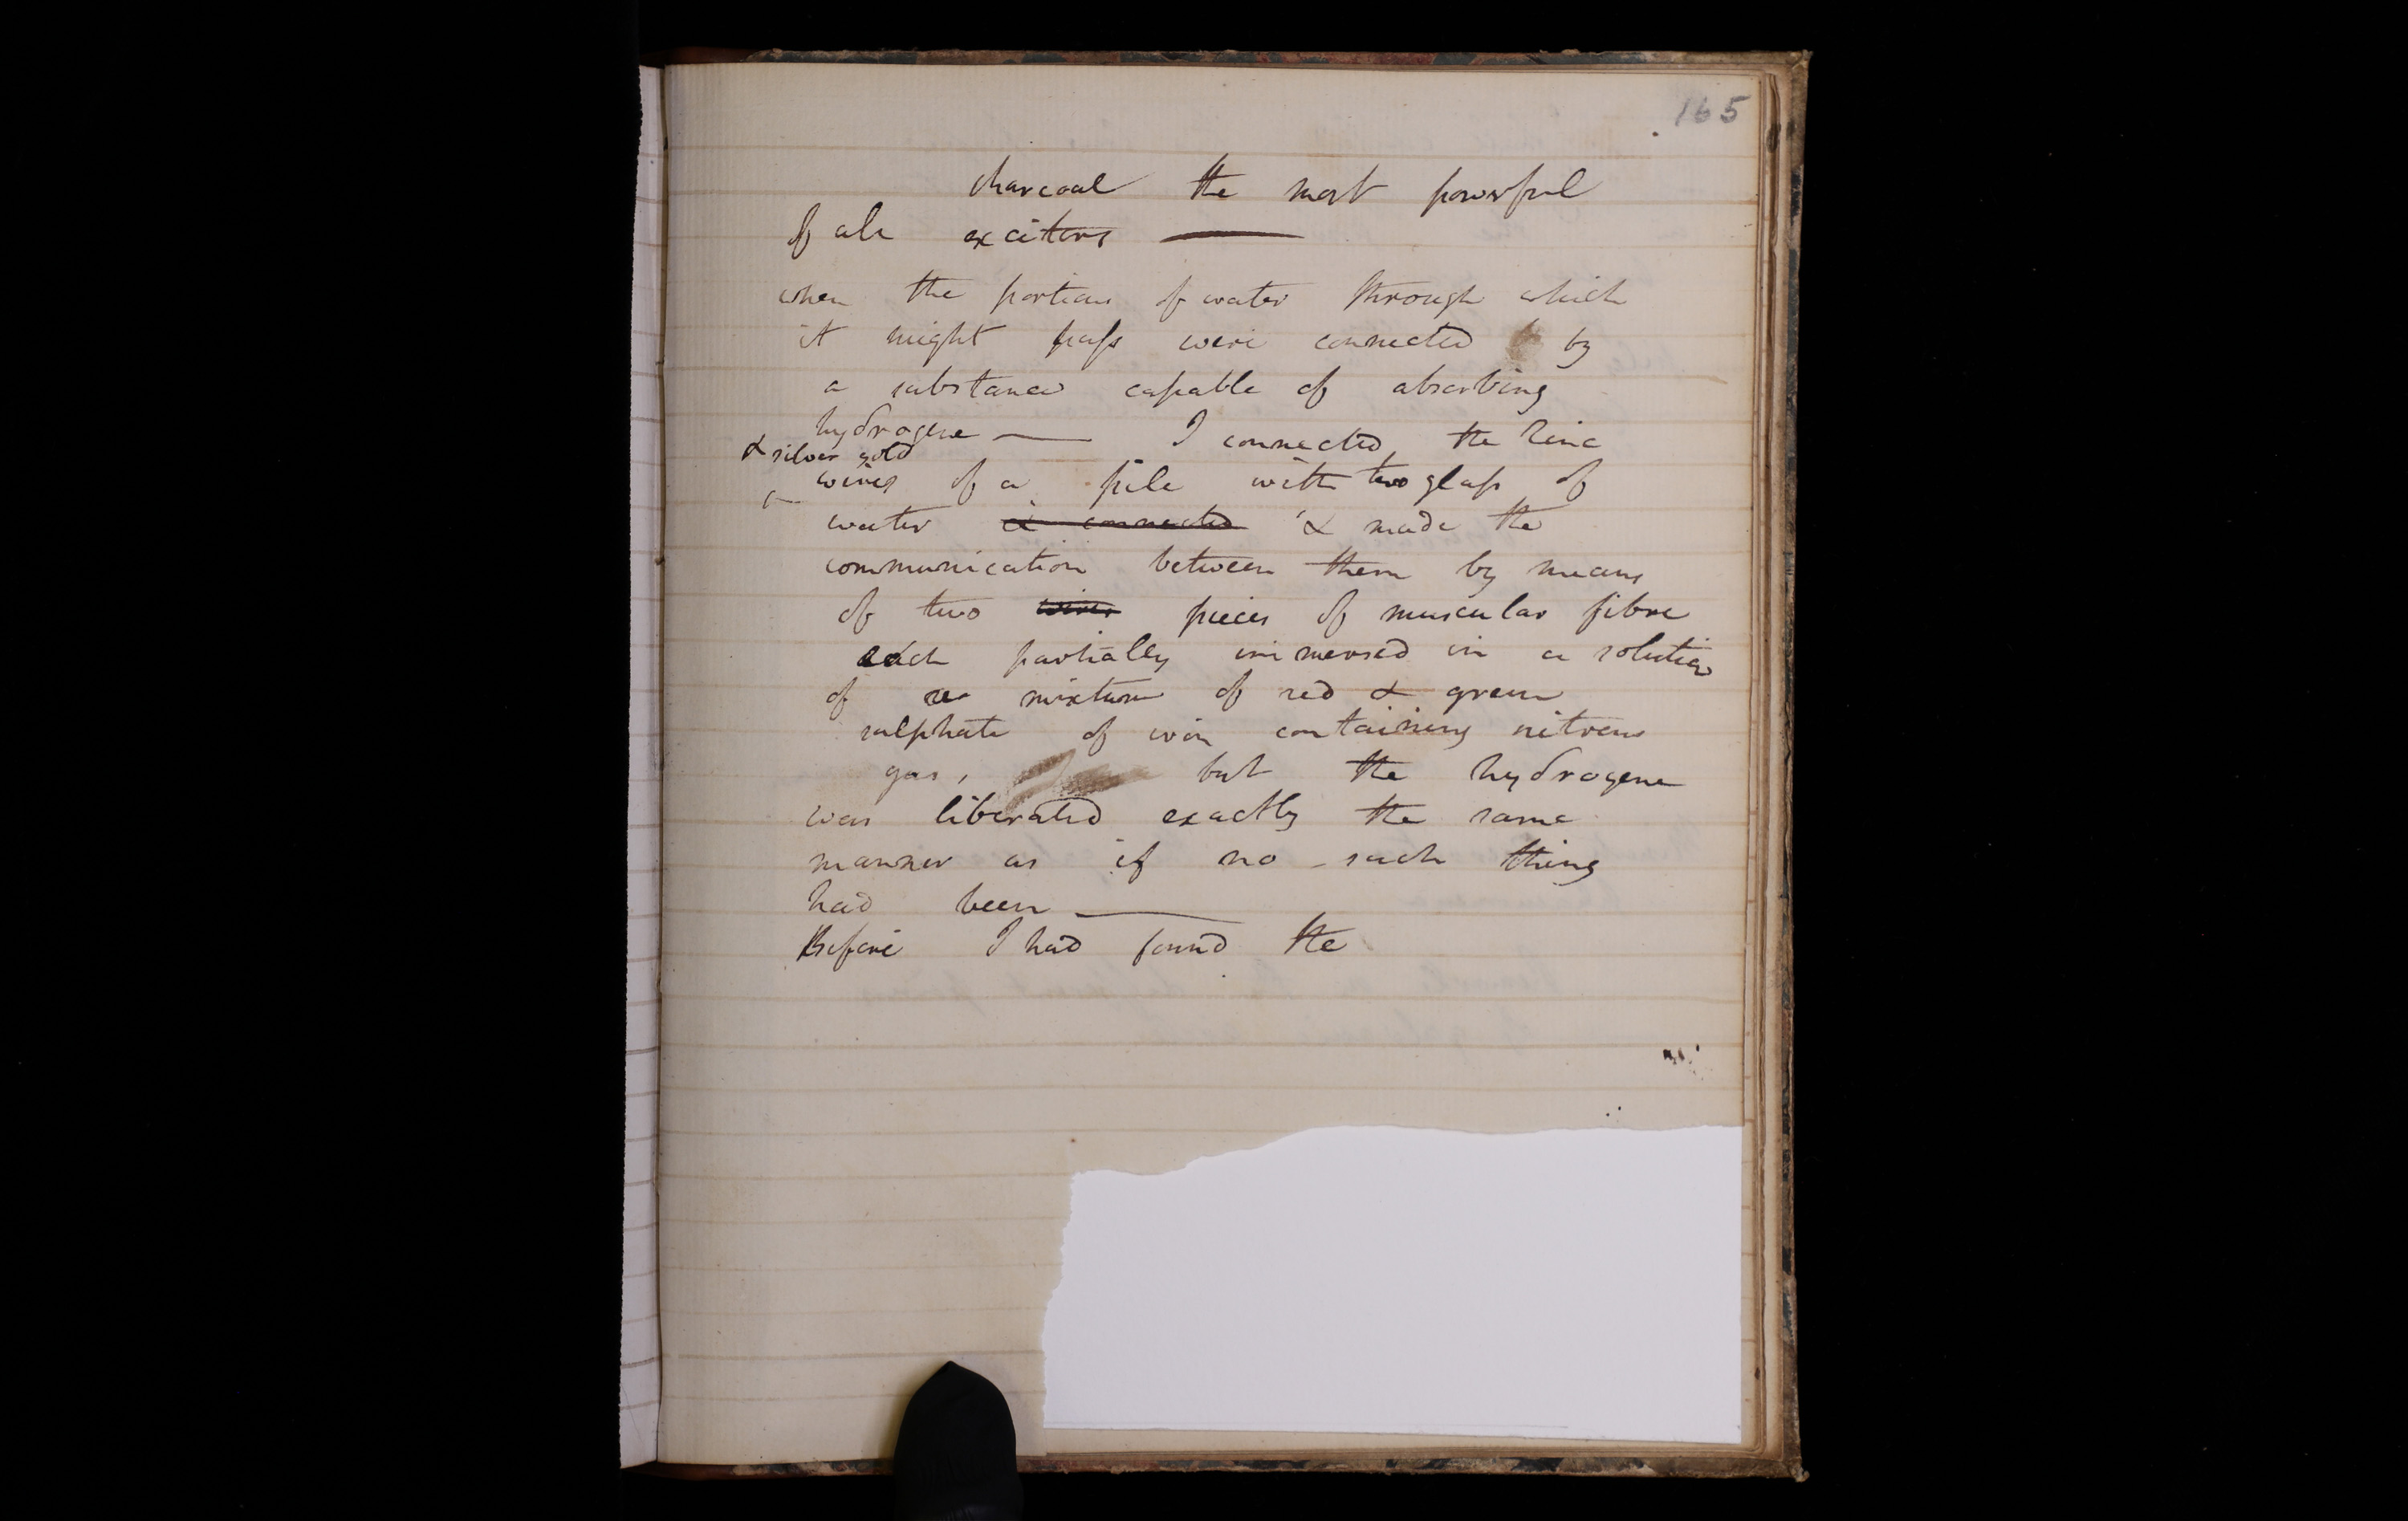 165
charcoal the most powerful
of all exciters ———
when the portions of water through which
it might pass were connected by
a substance capable of absorbing
hydrogene —— I connected the zinc
& silver gold
wires of a pile with two glass of
water & connected & made the
communication between them by means
of two wires pieces of muscular fibre
each partially immersed in a solution
of a mixture of red & green
sulphate of iron containing nitrous
gas, but the hydrogene
was liberated exactly the same
manner as if no such thing
had been ———
Before I had found the